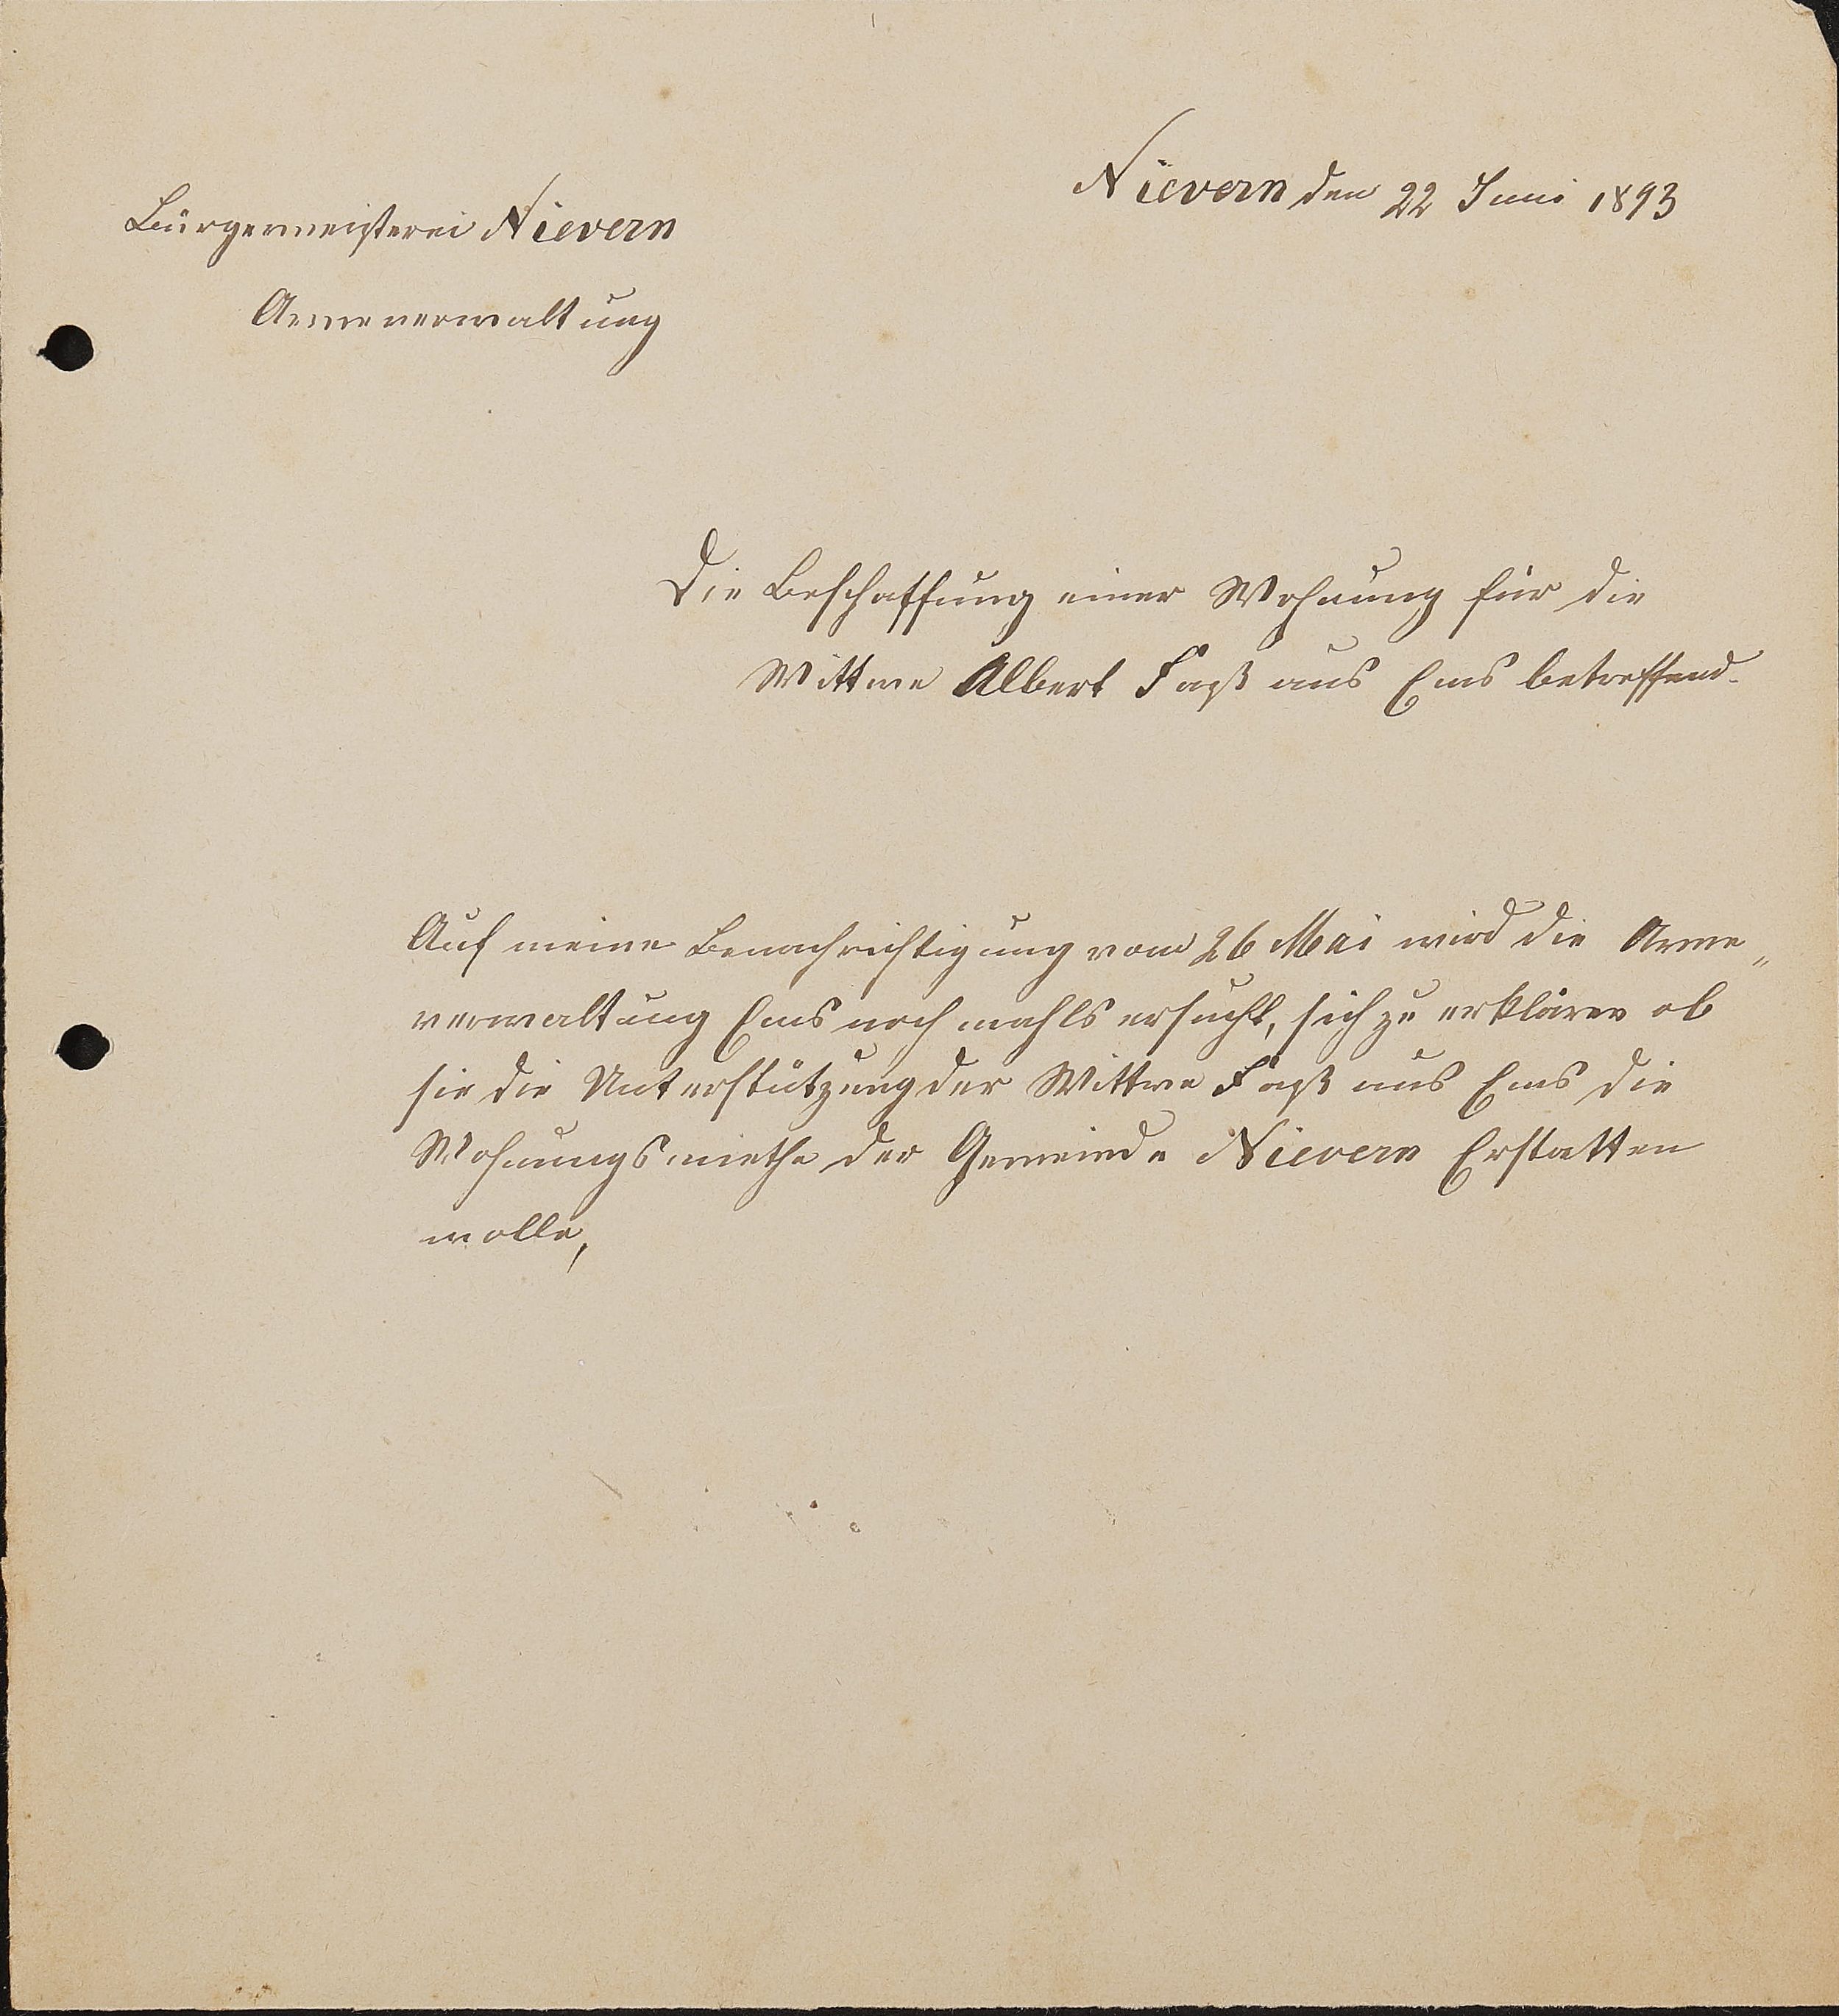 Nievern den 22 Juni 1893
Bürgermeisterei Nievern
Armeverwaltung
Die Beschaffung einer Wohnung für die
Wittwe Albert Faß aus Ems betreffend.
Auf meine Benachrichtigung vom 26 Mai wird die Arme„
verwaltung Ems noch mahls ersucht, sich zu erklären ob
sie die Unterstützung der Wittwe Faß aus Ems die
Wohnungsmiethe der Gemeinde Nievern Erstatten
wolle,